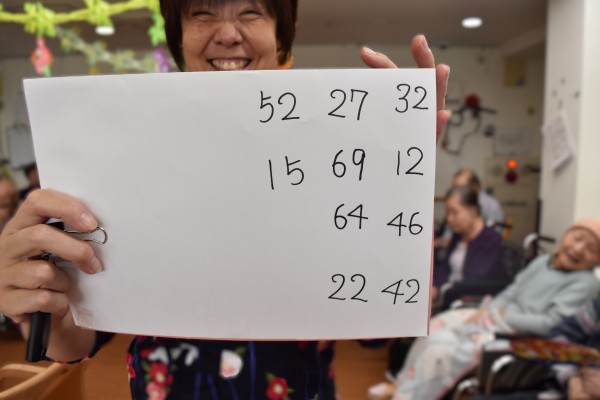 52 27 32
15 69 12
64 46
22 42